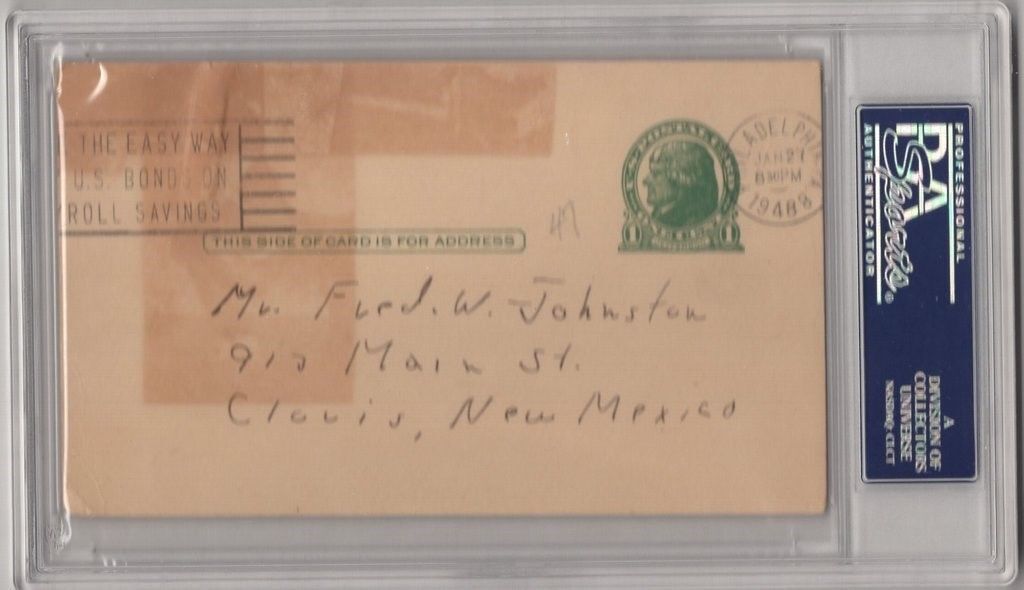 THE EASY WAY
U.S. BONDS ON
ROLL SAVINGS
THIS SIDE OF CARD IS FOR ADDRESS
PHILADELPHIA
JAN 27
8 30 PM
1948
47
1 1
Mr. Fred. W. Johnston
913 Main St.
Clovis, New Mexico
PROFESSIONAL
PSA
Sports®
AUTHENTICATOR
A
DIVISION OF
COLLECTORS
UNIVERSE
NASDAQ: CLCT